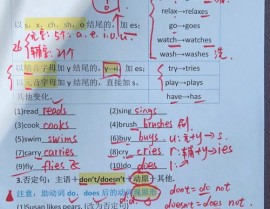 relax→relaxes
以 s, x, ch, sh, o 结尾的, 加 es;
go→goes
元音: 5个: a. e. i. o. u.
watch→watches
26
辅音: 21个
wash→washes
以辅音字母加 y 结尾的, y→i 加 es;
try→tries
以元音字母加 y 结尾的, 直接加 s。
play→plays
其他变化。
have→has
(1)read reads (2)sing sings
(3)cook cooks (4)brush brushes 刷
(5)swim swims (6)buy buys
(7)carry carries (8)cry cries r: 辅+y→ies
(9)fly flies (10)do does
3.否定句: 主语+don't/doesn't+动原+其他。
注意: 助动词 do、does 后的动词
don't= do not
(1)Susan likes pears. (改为否定句)
doesn't= does not